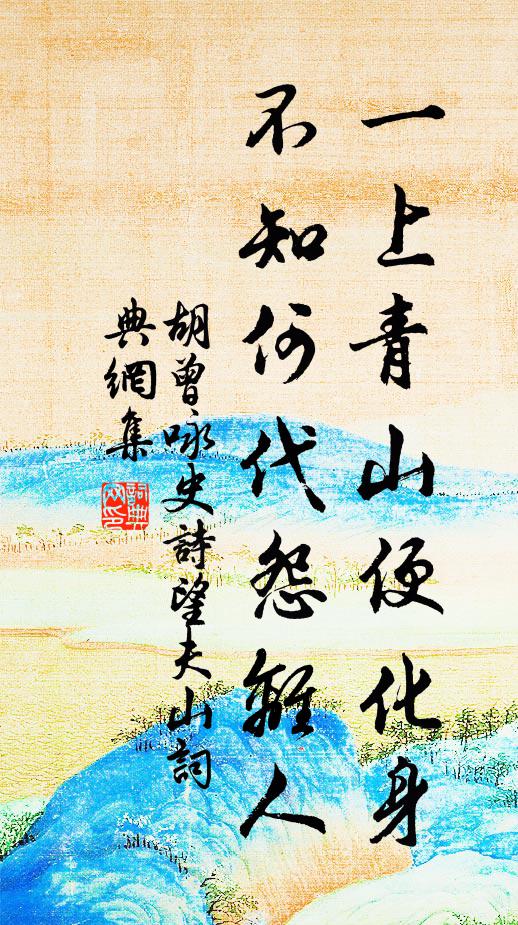 一上青山便化身
不知何代怨離人
胡曾咏史詩望夫山詞
典網集
詞典
网印